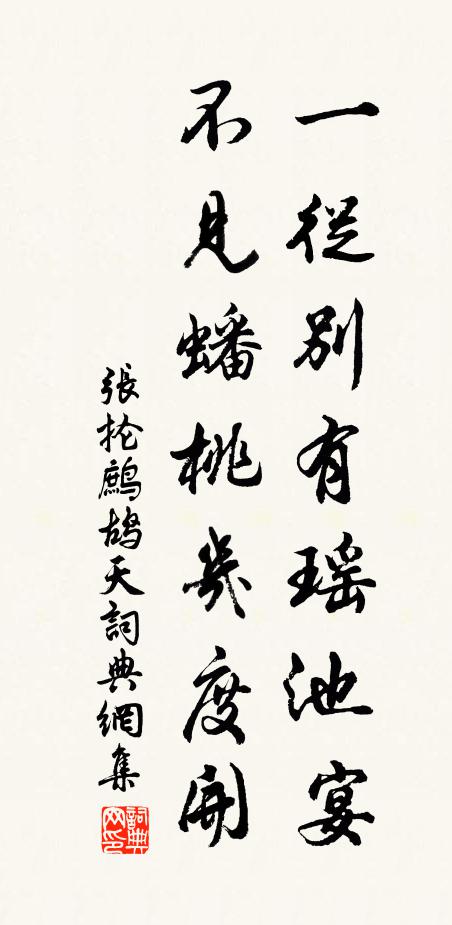 一從別有瑤池宴
不見蟠桃幾度開
張抡鷓鴣天詞典網集
詞典网印